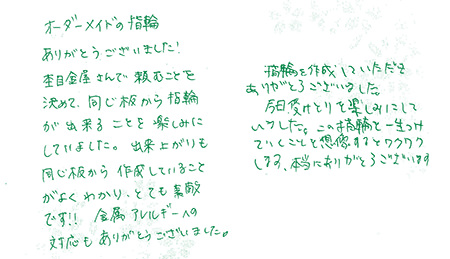 オーダーメイドの指輪
ありがとうございました!
杢目金屋さんで頼むことを
決めて、同じ板から指輪
が出来ることを楽しみに
していました。出来上がりも
同じ板から作成していること
がよくわかり、とても素敵
です!! 金属アレルギーへの
対応もありがとうございました。
指輪を作成していただき
ありがとうございました。
今日受けとりを楽しみにして
いました。この指輪を一生つけ
ていくことを想像するとワクワク
します、本当にありがとうございます